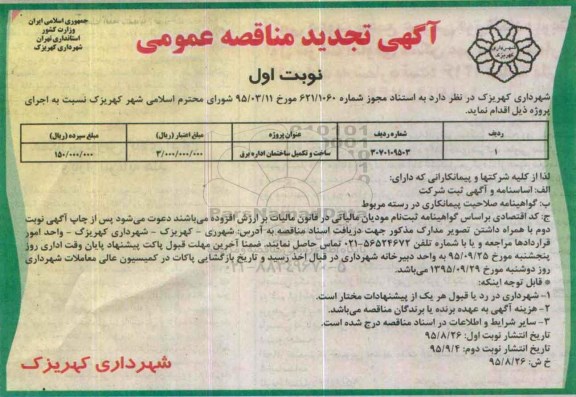 جمهوری اسلامی ایران
وزارت کشور
استانداری تهران
شهرداری کهریزک
آگهی تجدید مناقصه عمومی
نوبت اول
شهرداری کهریزک
شهرداری کهریزک در نظر دارد به استناد مجوز شماره ۶۲۱/۱۰۶۰ مورخ ۹۵/۰۳/۱۱ شورای محترم اسلامی شهر کهریزک نسبت به اجرای
پروژه ذیل اقدام نماید.
ردیف شماره ردیف عنوان پروژه مبلغ اعتبار (ریال) مبلغ سپرده (ریال)
۱ ۳۰۷۰۱۰۹۵۰۳ ساخت و تکمیل ساختمان اداره برق ۳/۰۰۰/۰۰۰/۰۰۰ ۱۵۰/۰۰۰/۰۰۰
لذا از کلیه شرکتها و پیمانکارانی که دارای:
الف: اساسنامه و آگهی ثبت شرکت
ب: گواهینامه صلاحیت پیمانکاری در رسته مربوط
ج: کد اقتصادی براساس گواهینامه ثبت‌نام مودیان مالیاتی در قانون مالیات بر ارزش افزوده می‌باشند دعوت می‌شود پس از چاپ آگهی نوبت
دوم با همراه داشتن تصویر مدارک مذکور جهت دریافت اسناد مناقصه به آدرس: شهرری - کهریزک - شهرداری کهریزک - واحد امور
قراردادها مراجعه و یا با شماره تلفن ۵۶۵۲۴۶۷۲-۰۲۱ تماس حاصل نمایند. ضمنا آخرین مهلت قبول پاکت پیشنهاد پایان وقت اداری روز
پنجشنبه مورخ ۹۵/۰۹/۲۵ به واحد دبیرخانه شهرداری در قبال اخذ رسید و تاریخ بازگشایی پاکات در کمیسیون عالی معاملات شهرداری
روز دوشنبه مورخ ۱۳۹۵/۰۹/۲۹ می‌باشد.
* قابل توجه اینکه:
۱- شهرداری در رد یا قبول هر یک از پیشنهادات مختار است.
۲- هزینه آگهی به عهده برنده یا برندگان مناقصه می‌باشد.
۳- سایر شرایط و اطلاعات در اسناد مناقصه درج شده است.
تاریخ انتشار نوبت اول: ۹۵/۸/۲۶
تاریخ انتشار نوبت دوم: ۹۵/۹/۴
خ ش: ۹۵/۸/۲۶
شهرداری کهریزک